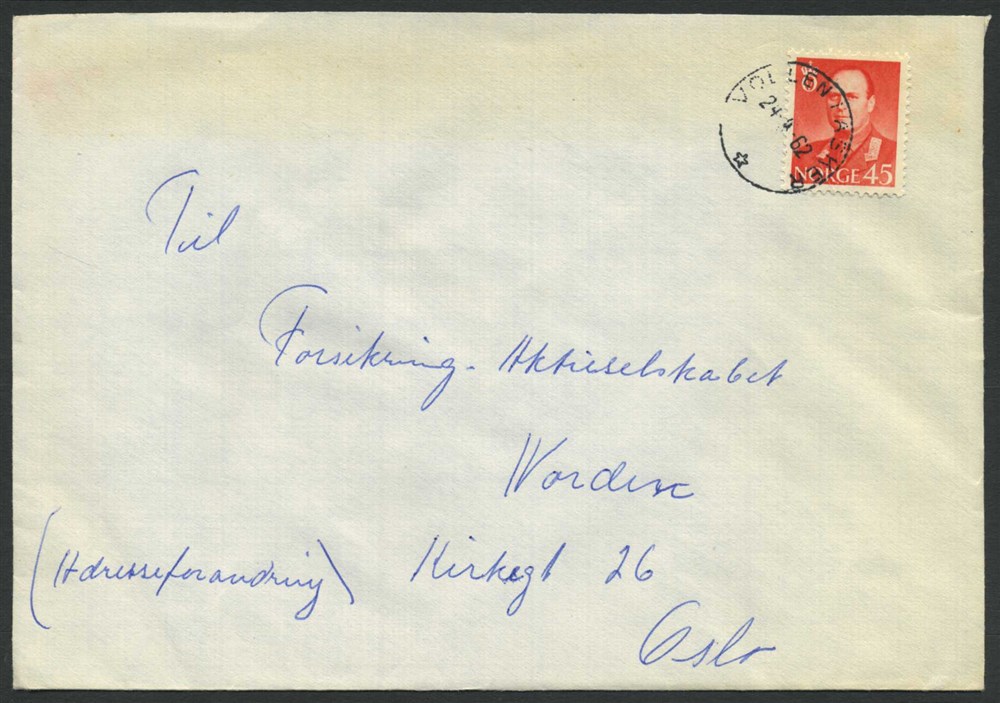 VOLLEN I ASKER
24-4-62
NORGE 45
Til
Forsikring-Aktieselskabet
Norden
(Adresseforandring) Kirkegt 26
Oslo